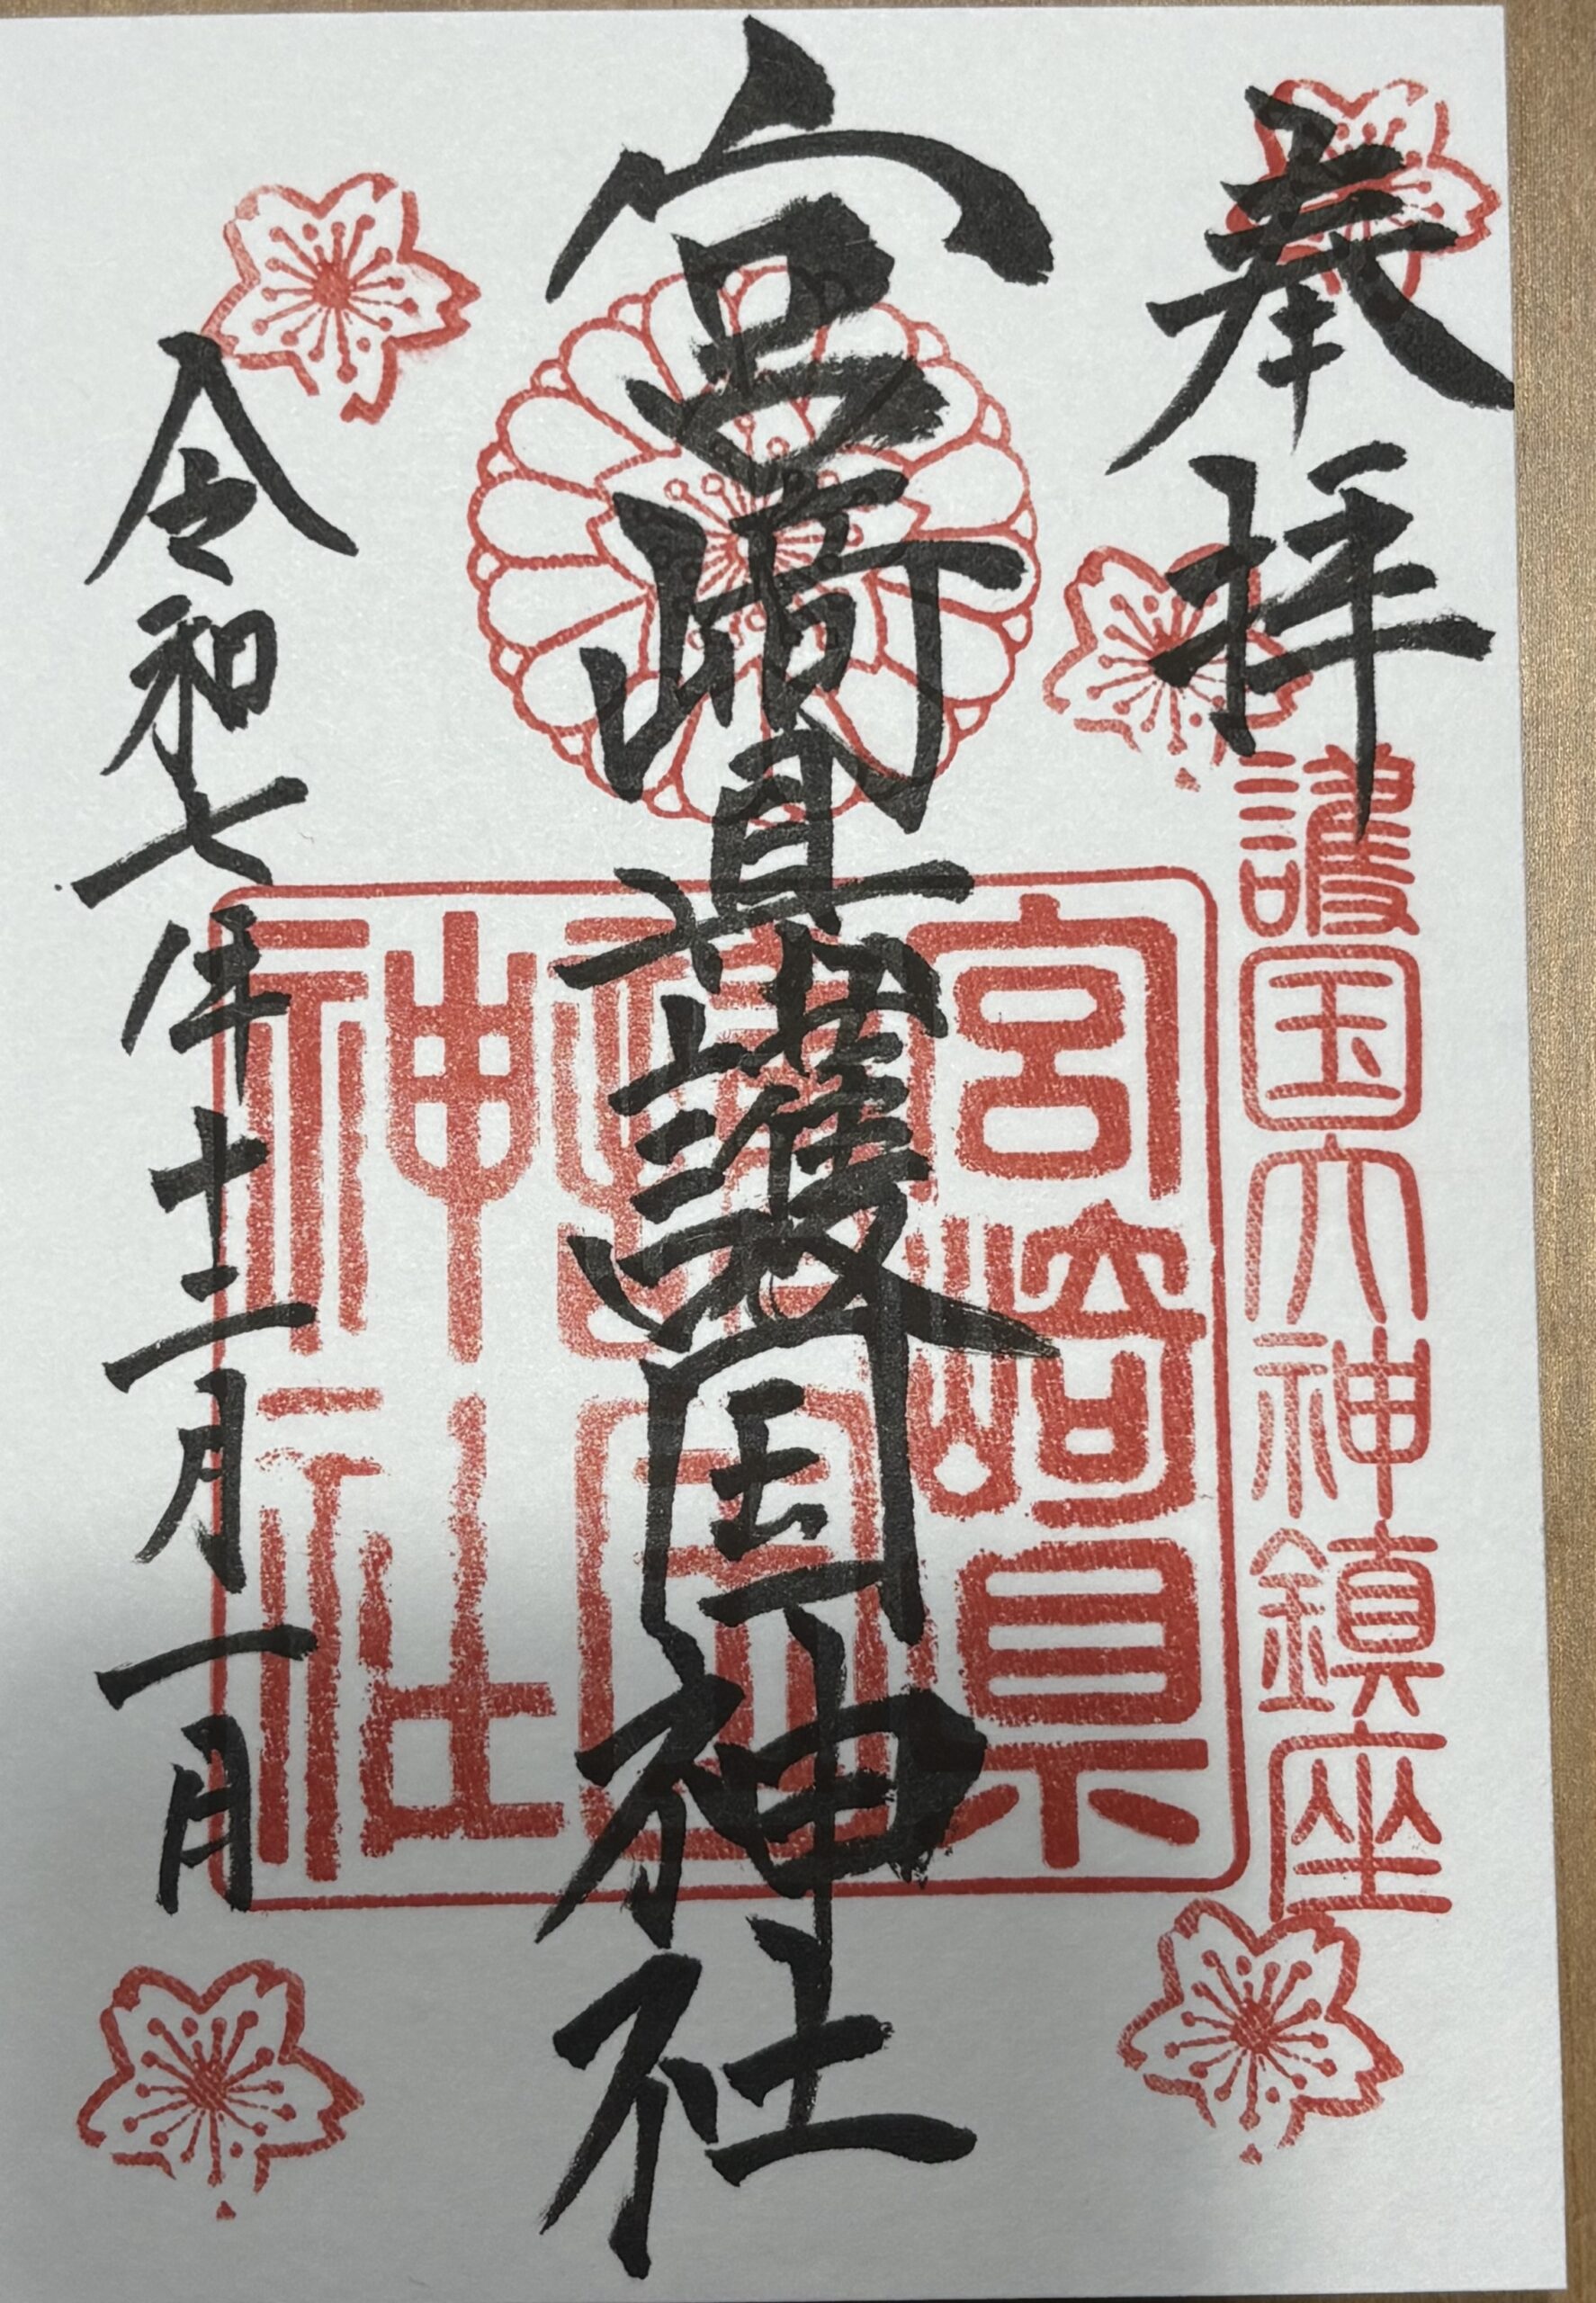 奉拝
護国大神鎮座
宮崎県護国神社
宮崎県
護国
神社
令和七年十二月一日